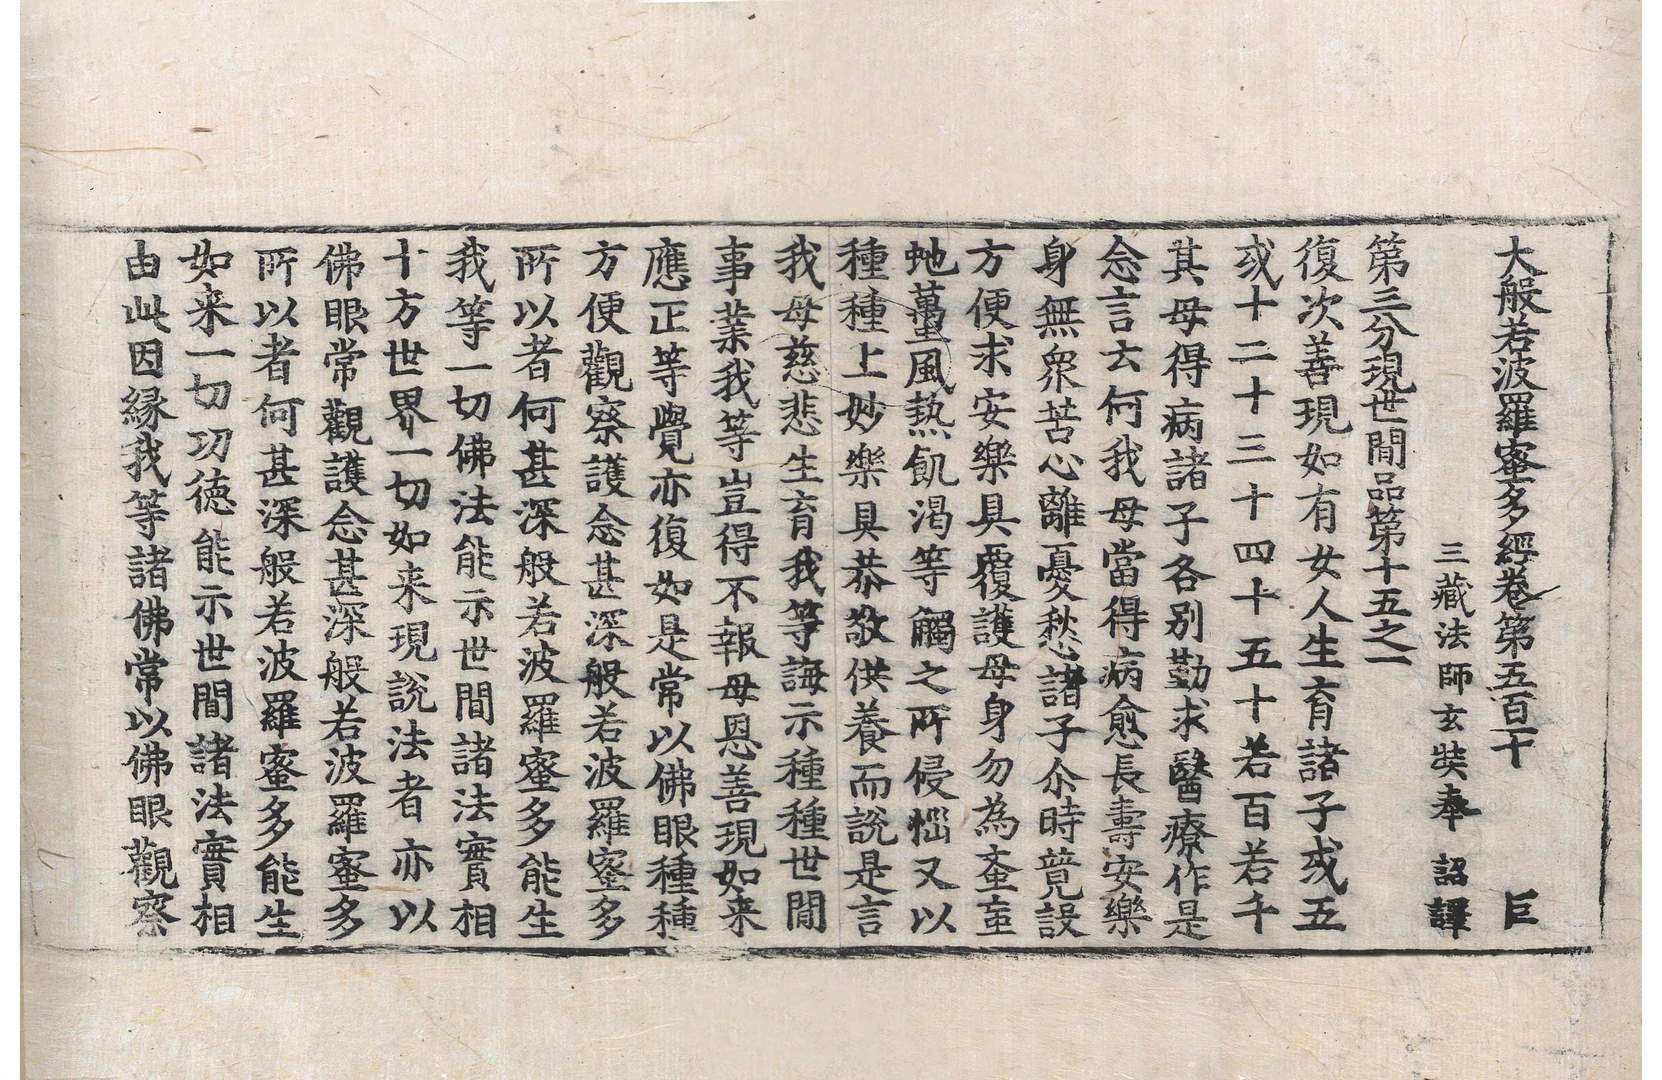 大般若波羅蜜多經卷第五百十　巨
三藏法師玄奘奉　詔譯
第三分現世間品第十五之一
復次善現如有女人生育諸子或五
或十二十三十四十五十若百若千
其母得病諸子各別勤求醫療作是
念言云何我母當得病愈長壽安樂
身無衆苦心離憂愁諸子尒時競設
方便求安樂具覆護母身勿為蚉䖟
虵蠆風熱飢渴等觸之所侵惱又以
種種上妙樂具恭敬供養而說是言
我母慈悲生育我等誨示種種世間
事業我等豈得不報母恩善現如来
應正等覺亦復如是常以佛眼種種
方便觀察護念甚深般若波羅蜜多
所以者何甚深般若波羅蜜多能生
我等一切佛法能示世間諸法實相
十方世界一切如来現說法者亦以
佛眼常觀護念甚深般若波羅蜜多
所以者何甚深般若波羅蜜多能生
如来一切功德能示世間諸法實相
由此因緣我等諸佛常以佛眼觀察